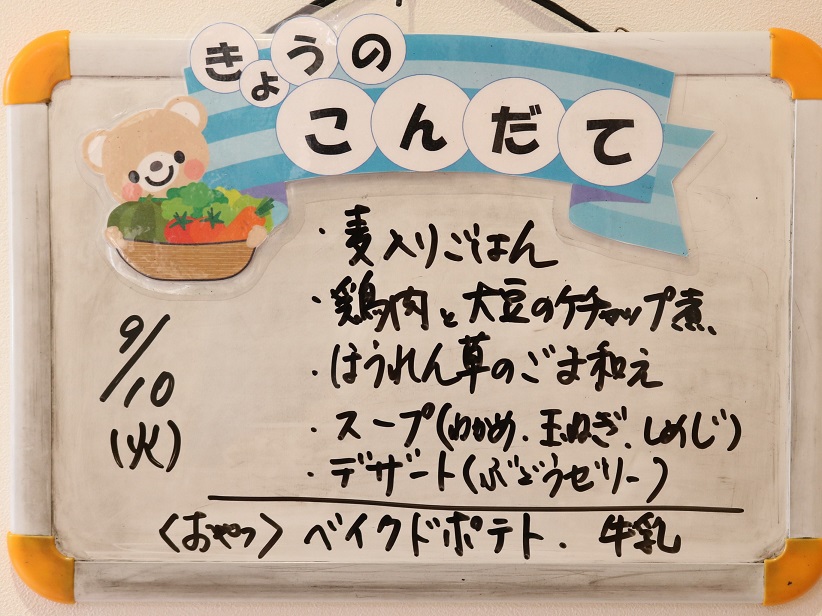 きょうの
こんだて
・麦入りごはん
・鶏肉と大豆のケチャップ煮
・ほうれん草のごま和え
・スープ(わかめ、玉ねぎ、しめじ)
・デザート(ぶどうゼリー)
9/10
(火)
〈おやつ〉ベイクドポテト、牛乳